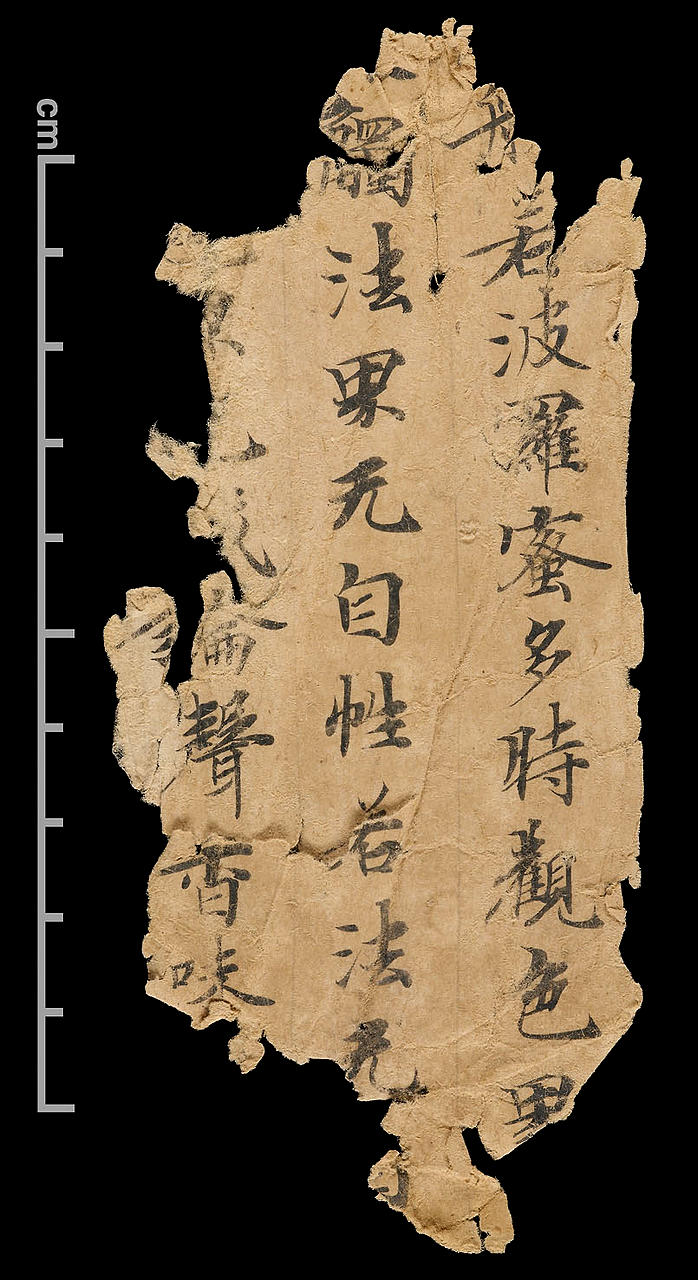 cm
般若波羅蜜多時觀色界
觸法界无自性若法无自
聲香味